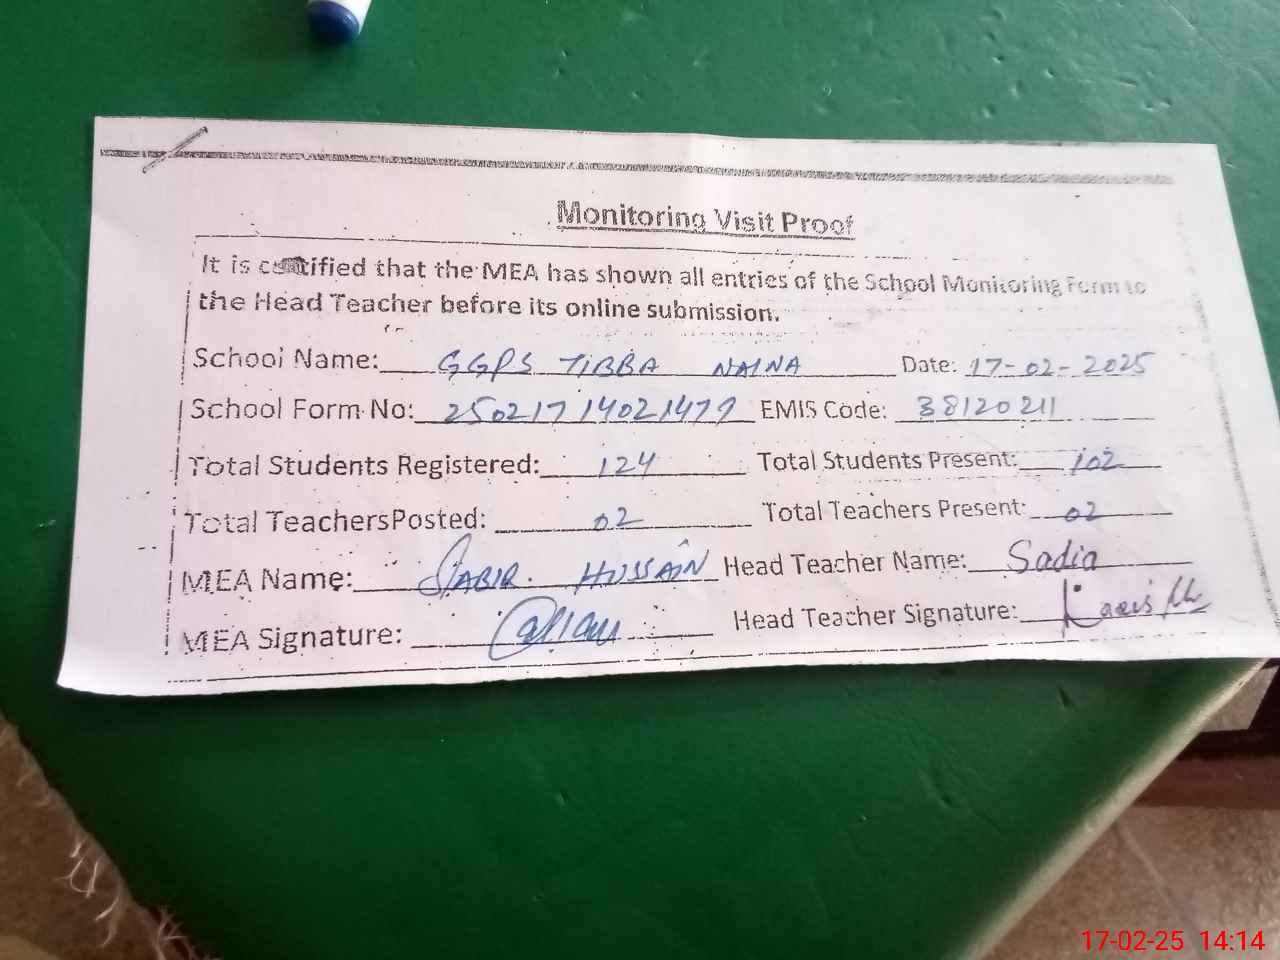 Monitoring Visit Proof
It is certified that the MEA has shown all entries of the School Monitoring Form to
the Head Teacher before its online submission.
School Name: GGPS TIBBA NAINA Date: 17-02-2025
School Form No: 25021714021479 EMIS Code: 38120211
Total Students Registered: 124 Total Students Present: 102
Total TeachersPosted: 02 Total Teachers Present: 02
MEA Name: SABIR HUSSAIN Head Teacher Name: Sadia
MEA Signature: Head Teacher Signature:
17-02-25 14:14